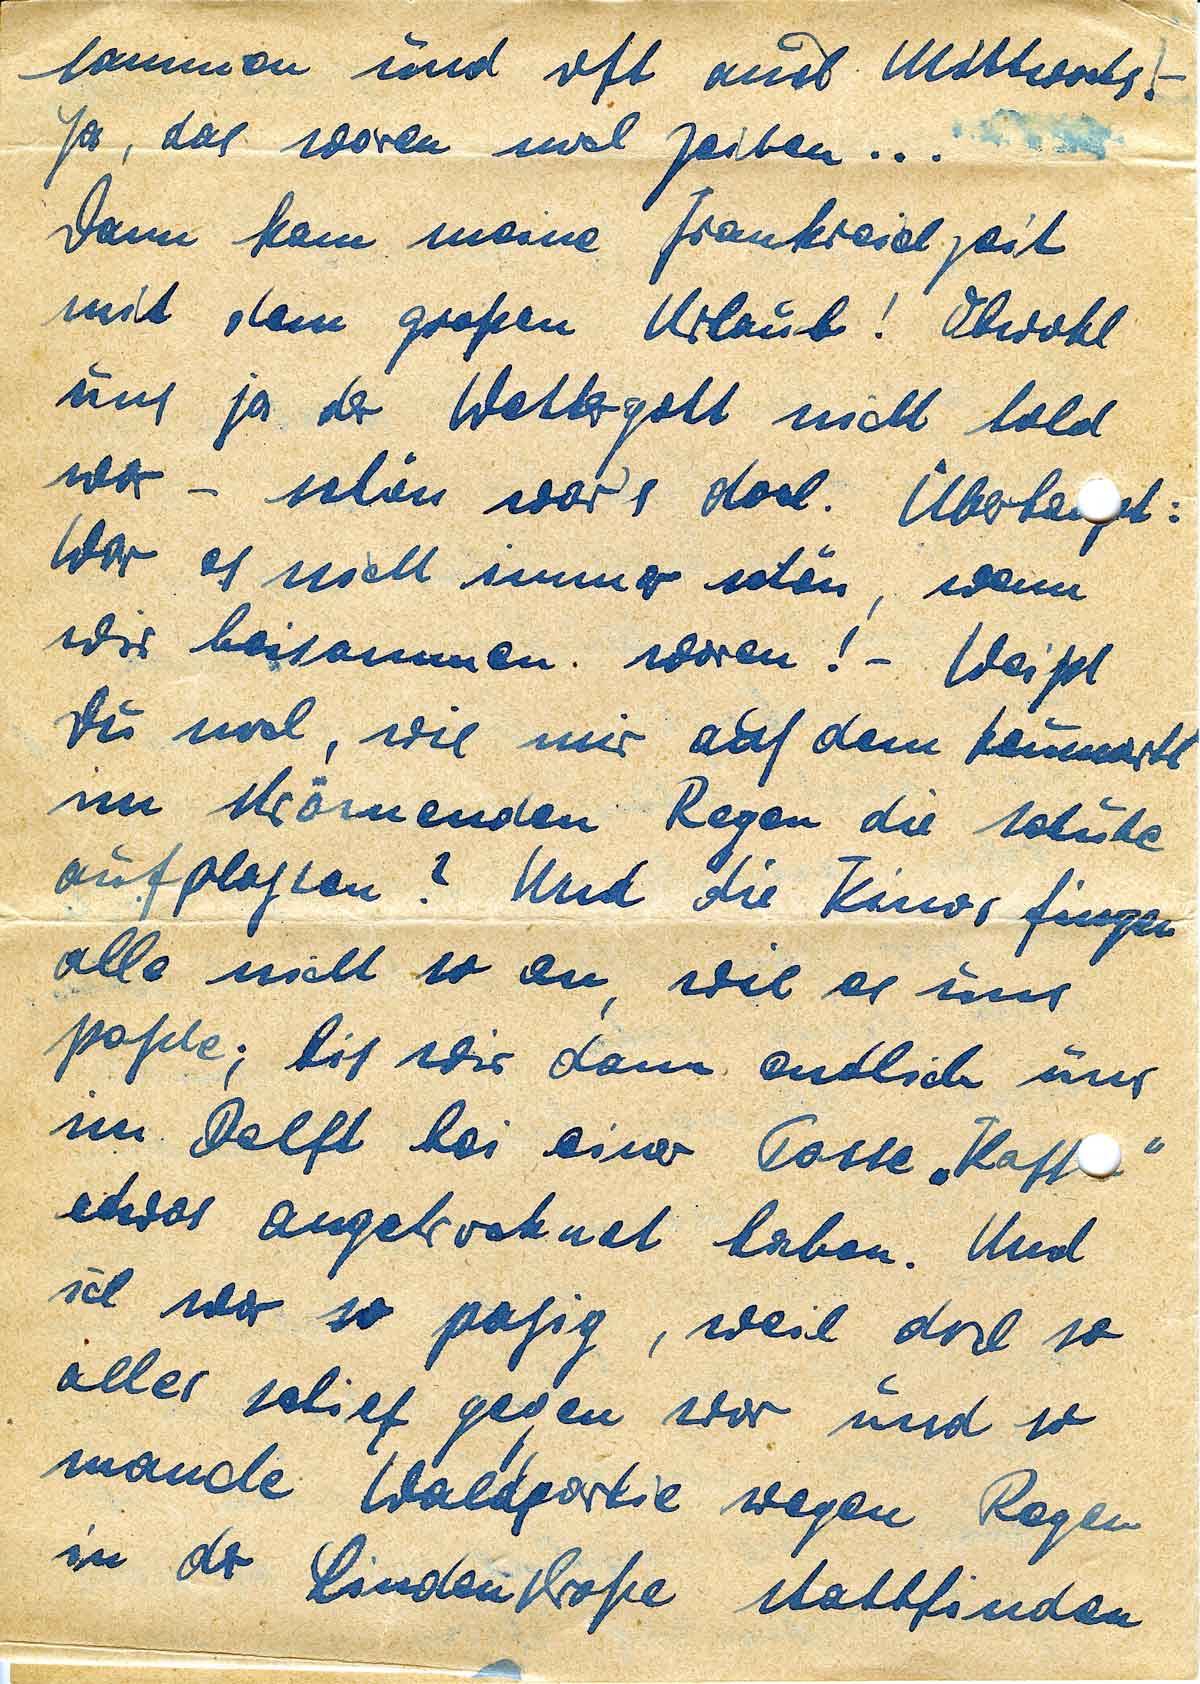 sammen und oft auch Mittwochs! –
Ja, das waren noch Zeiten...
Dann kam meine Frankreichzeit
mit dem großen Urlaub! Obwohl
uns ja der Wettergott nicht hold
war – schön war's doch. Überhaupt:
War es nicht immer schön, wenn
wir beisammen waren! – Weißt
Du noch, wie mir auf dem
im strömenden Regen die Schuhe
aufplatzten? Und die Kinos fingen
alle nicht so an, wie es uns
paßte; bis wir dann endlich uns
im Delft bei einer Tasse „Kaffee“
etwas angetrocknet haben. Und
ich war so patzig, weil doch so
alles schief gegen war und so
manche Waldpartie wegen Regen
in der Lindenstraße stattfinden